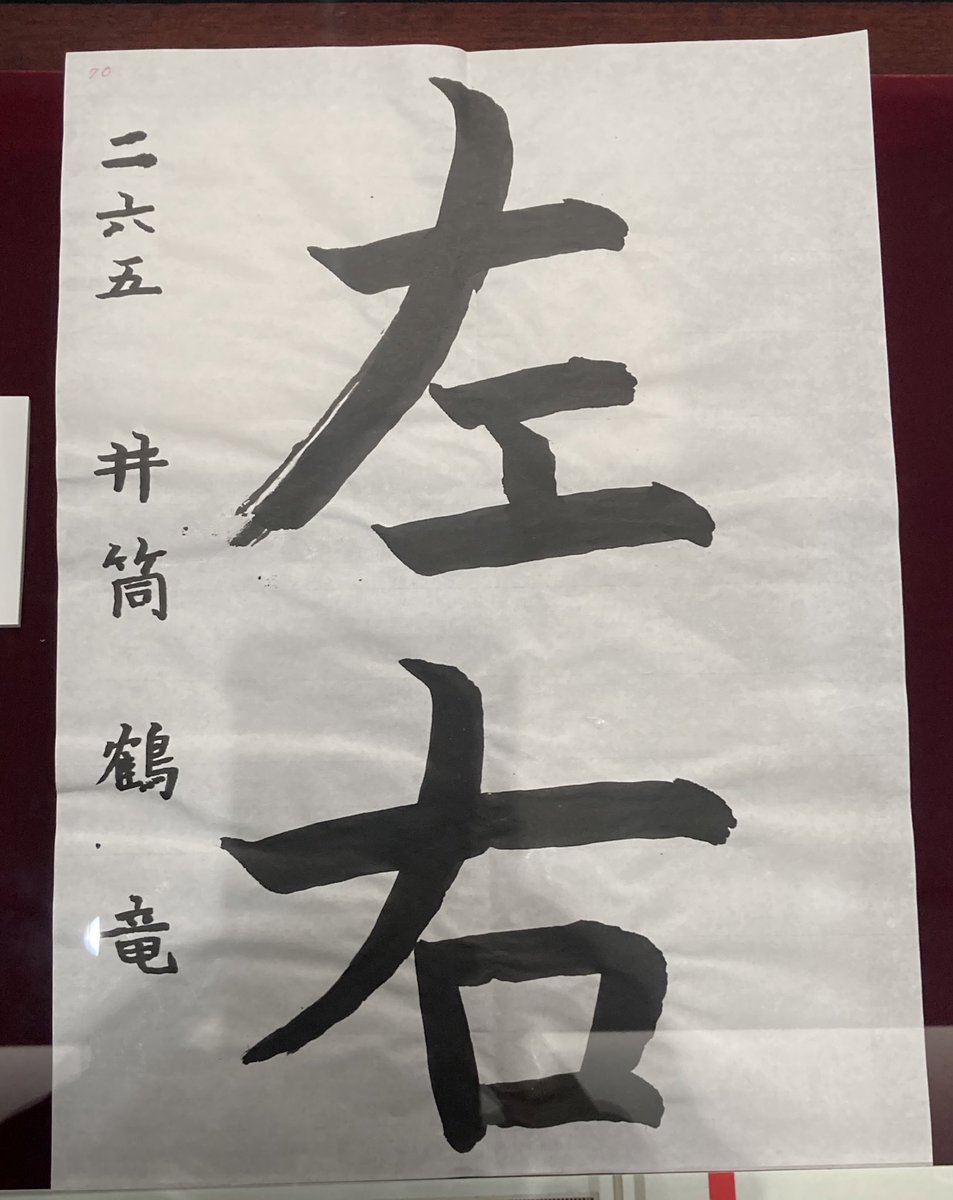 左右
二六五 井筒 鶴竜
70